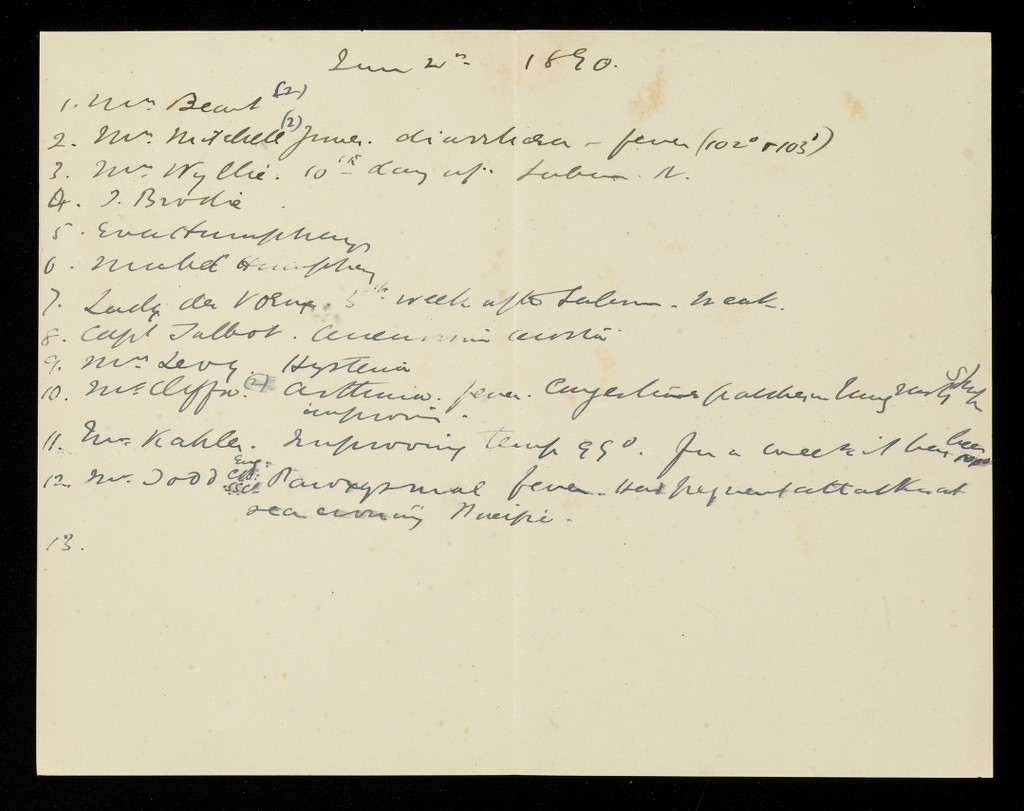 June 2nd 1890.
1. Mrs Beart (2)
2. Mr. Mitchell (2) Junr. diarrhoea - fever (102° & 103°)
3. Mrs Wyllie. 10th day aft. Labour. N.
4. J. Brodie.
5. Eva Humphreys
6. Mabel Humphrey
7. Lady des Voeux. 5th week after Labour. Weak.
8. Capt Talbot. Aneurism aorta
9. Mrs Levy. Hysteria
10. McClyffn. (2) Asthma. fever. Congestion patches in lung
improving.
11. Mr Kahler. Improving temp 99°. For a week it has been
12. Mr. Todd Eng. Paroxysmal fever. Had frequent attacks at
sea crossing Pacific.
13.